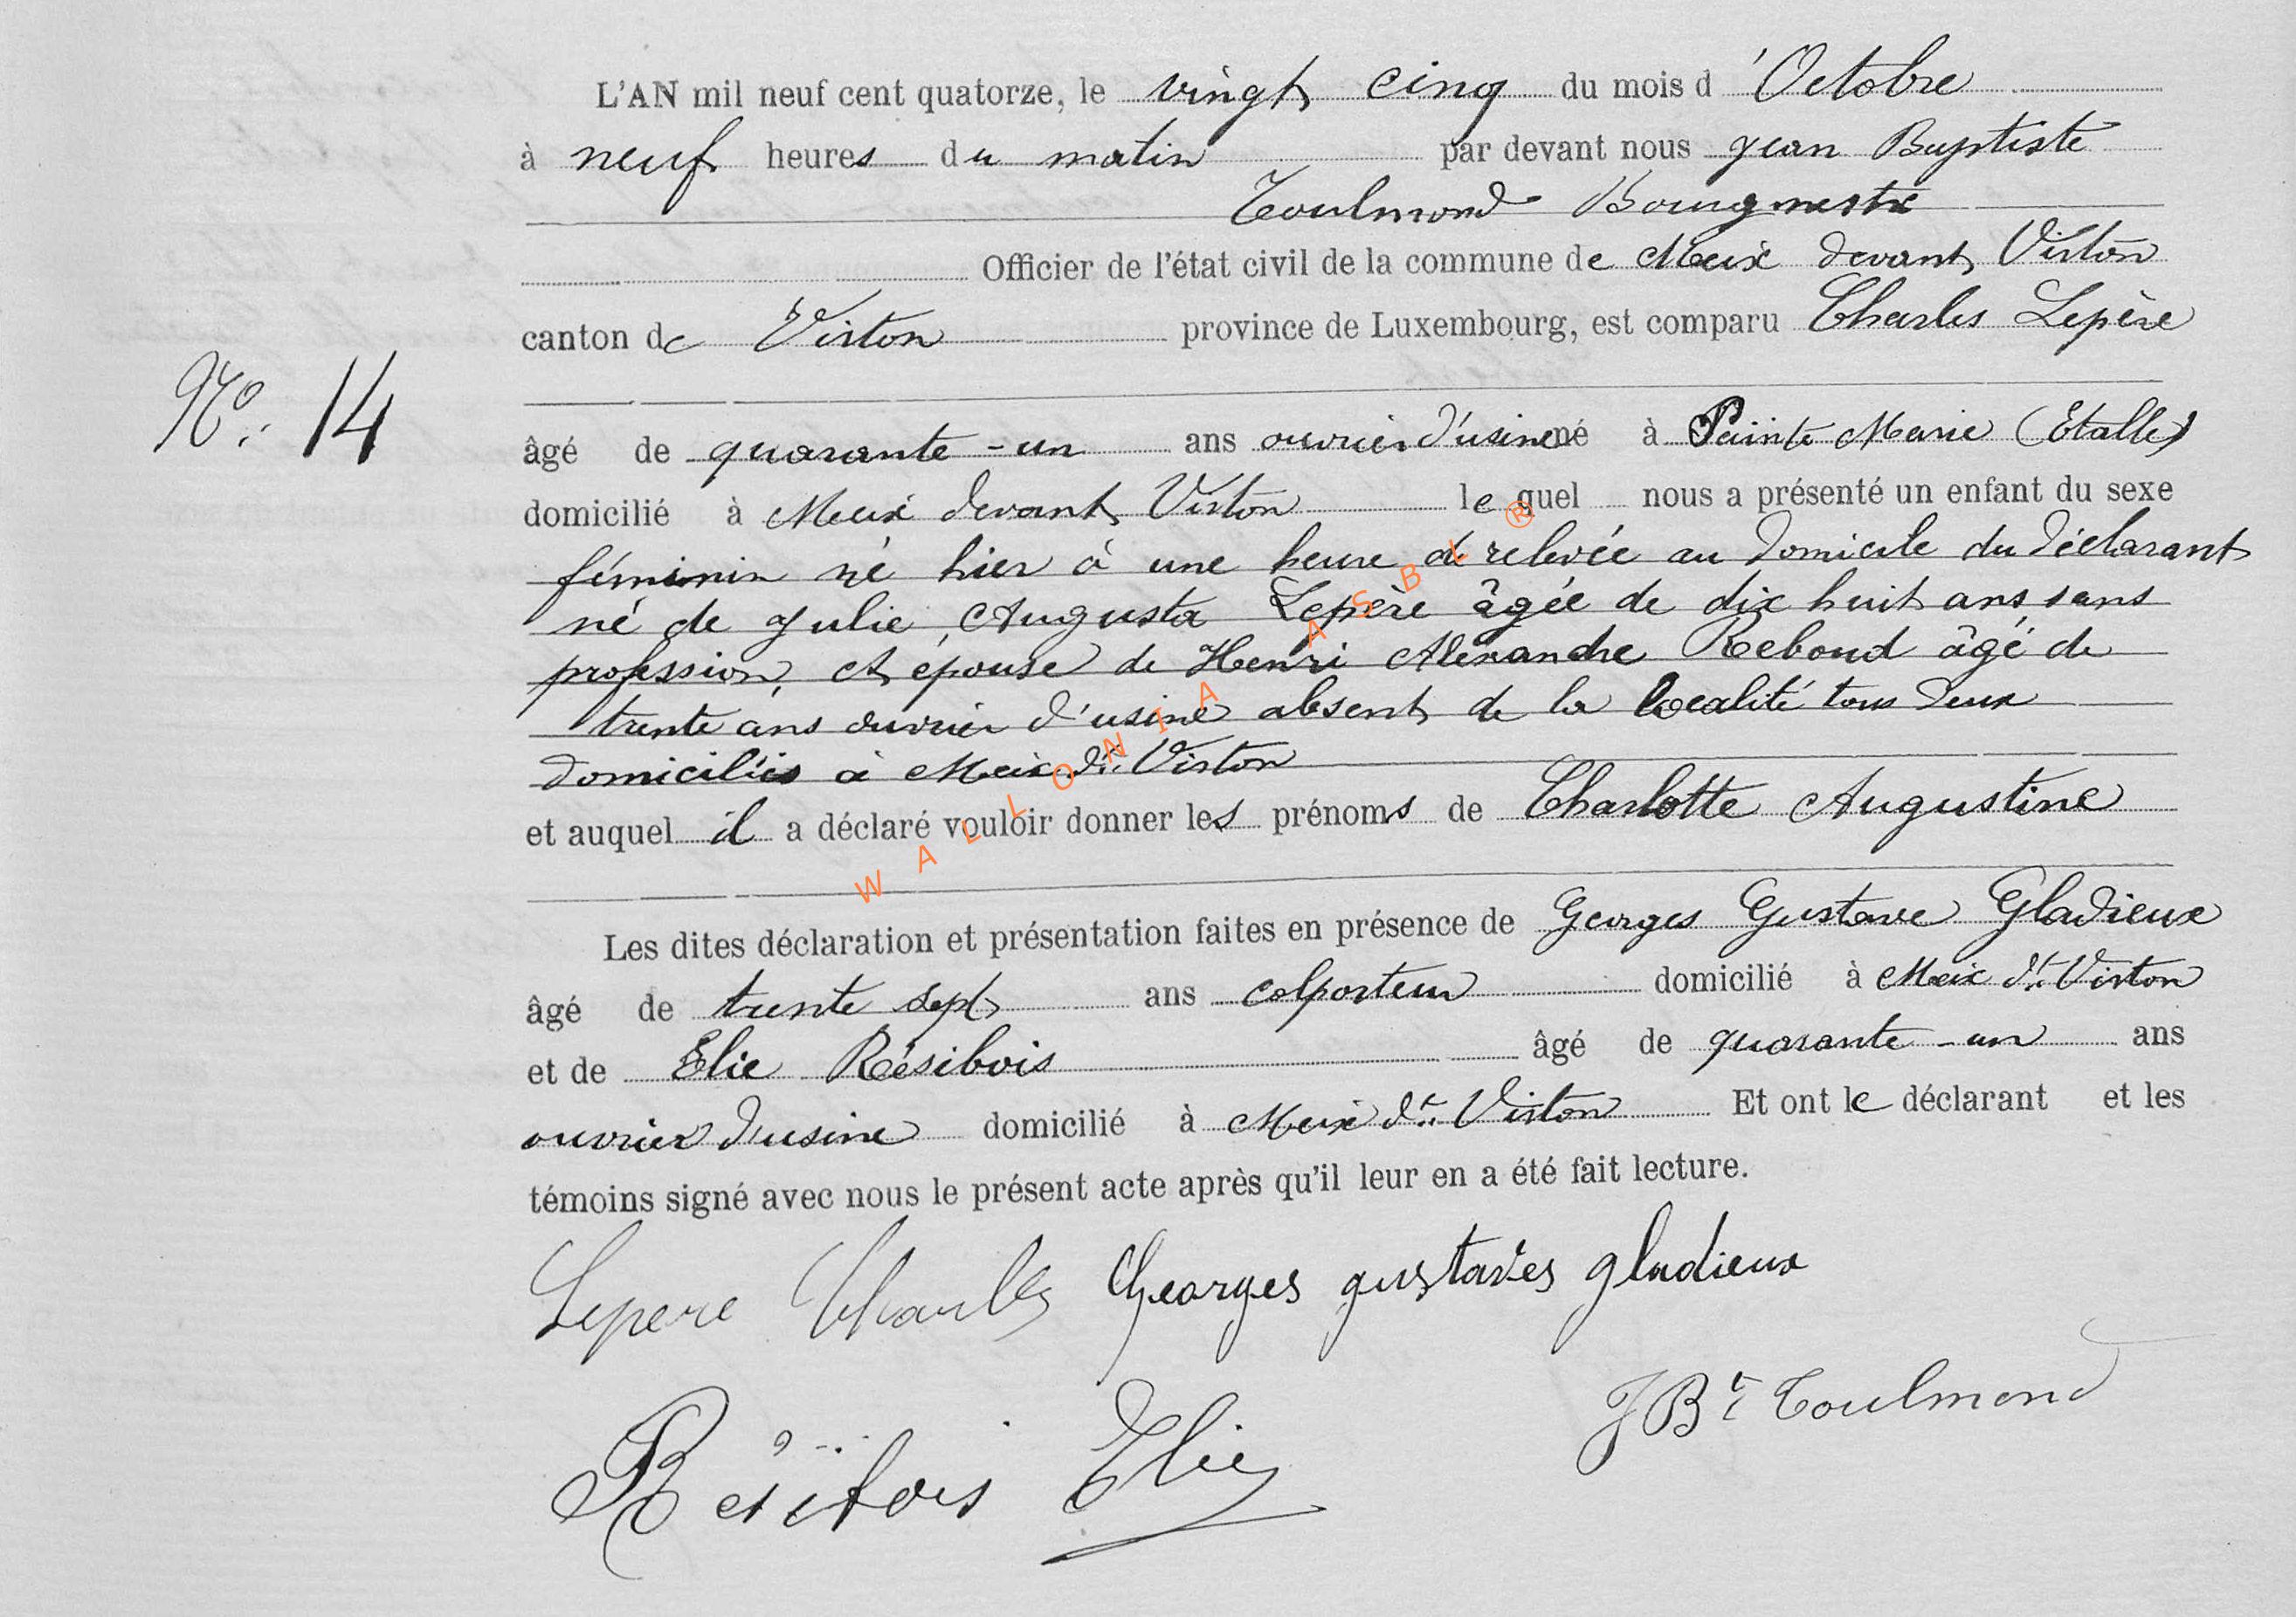 L'AN mil neuf cent quatorze, le vingt cinq du mois d'Octobre
à neuf heures du matin par devant nous Jean Baptiste
Toulmond Bourgmestre
Officier de l'état civil de la commune de Meix devant Virton
canton de Virton province de Luxembourg, est comparu Charles Lepère
No. 14
âgé de quarante-un ans ouvrier d'usine né à Sainte Marie (Etalle)
domicilié à Meix devant Virton lequel nous a présenté un enfant du sexe
féminin né hier à une heure de relevée au domicile du déclarant
né de Julie, Augusta Lepère âgée de dix huit ans, sans
profession, et épouse de Henri Alexandre Rebond âgé de
trente ans ouvrier d'usine absent de la localité tous deux
domiciliés à Meix dt. Virton
et auquel il a déclaré vouloir donner les prénoms de Charlotte Augustine
WALLONIA ASBL ®
Les dites déclaration et présentation faites en présence de Georges Gustave Gladieux
âgé de trente sept ans colporteur domicilié à Meix dt. Virton
et de Elie Résibois âgé de quarante-un ans
ouvrier d'usine domicilié à Meix dt. Virton Et ont le déclarant et les
témoins signé avec nous le présent acte après qu'il leur en a été fait lecture.
Lepere Charles Georges gustaves gladieux
JBte Toulmond
Résibois Elie